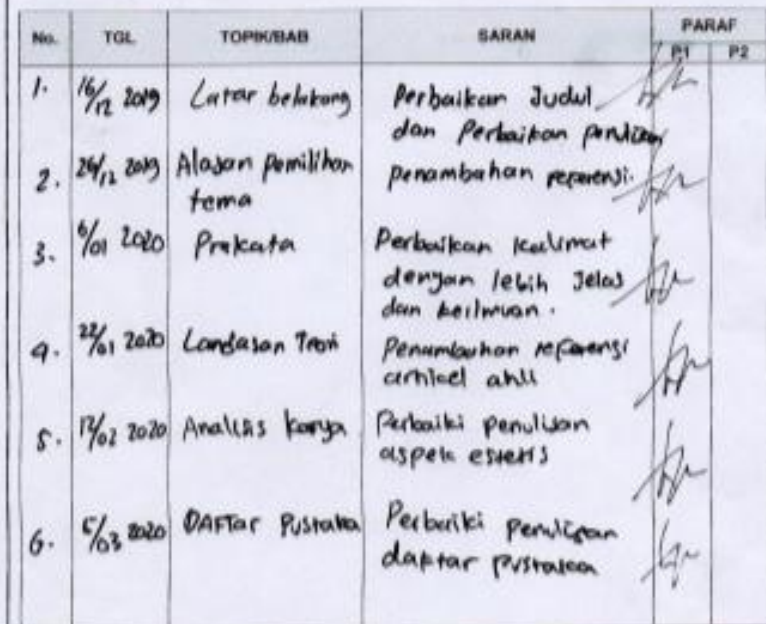 No. TGL TOPIK/BAB SARAN PARAF
P1 P2
1. 16/12 2019 Latar belakang Perbaikan Judul
dan Perbaikan penulisan
2. 26/12 2019 Alasan pemilihan penambahan referensi.
tema
3. 6/01 2020 Prakata Perbaikan kalimat
dengan lebih Jelas
dan keilmuan.
4. 22/01 2020 Landasan Teori Penambahan referensi
artikel ahli
5. 12/02 2020 Analisis karya Perbaiki penulisan
aspek estetis
6. 5/03 2020 DAFTar Pustaka Perbaiki penulisan
daftar pustaka